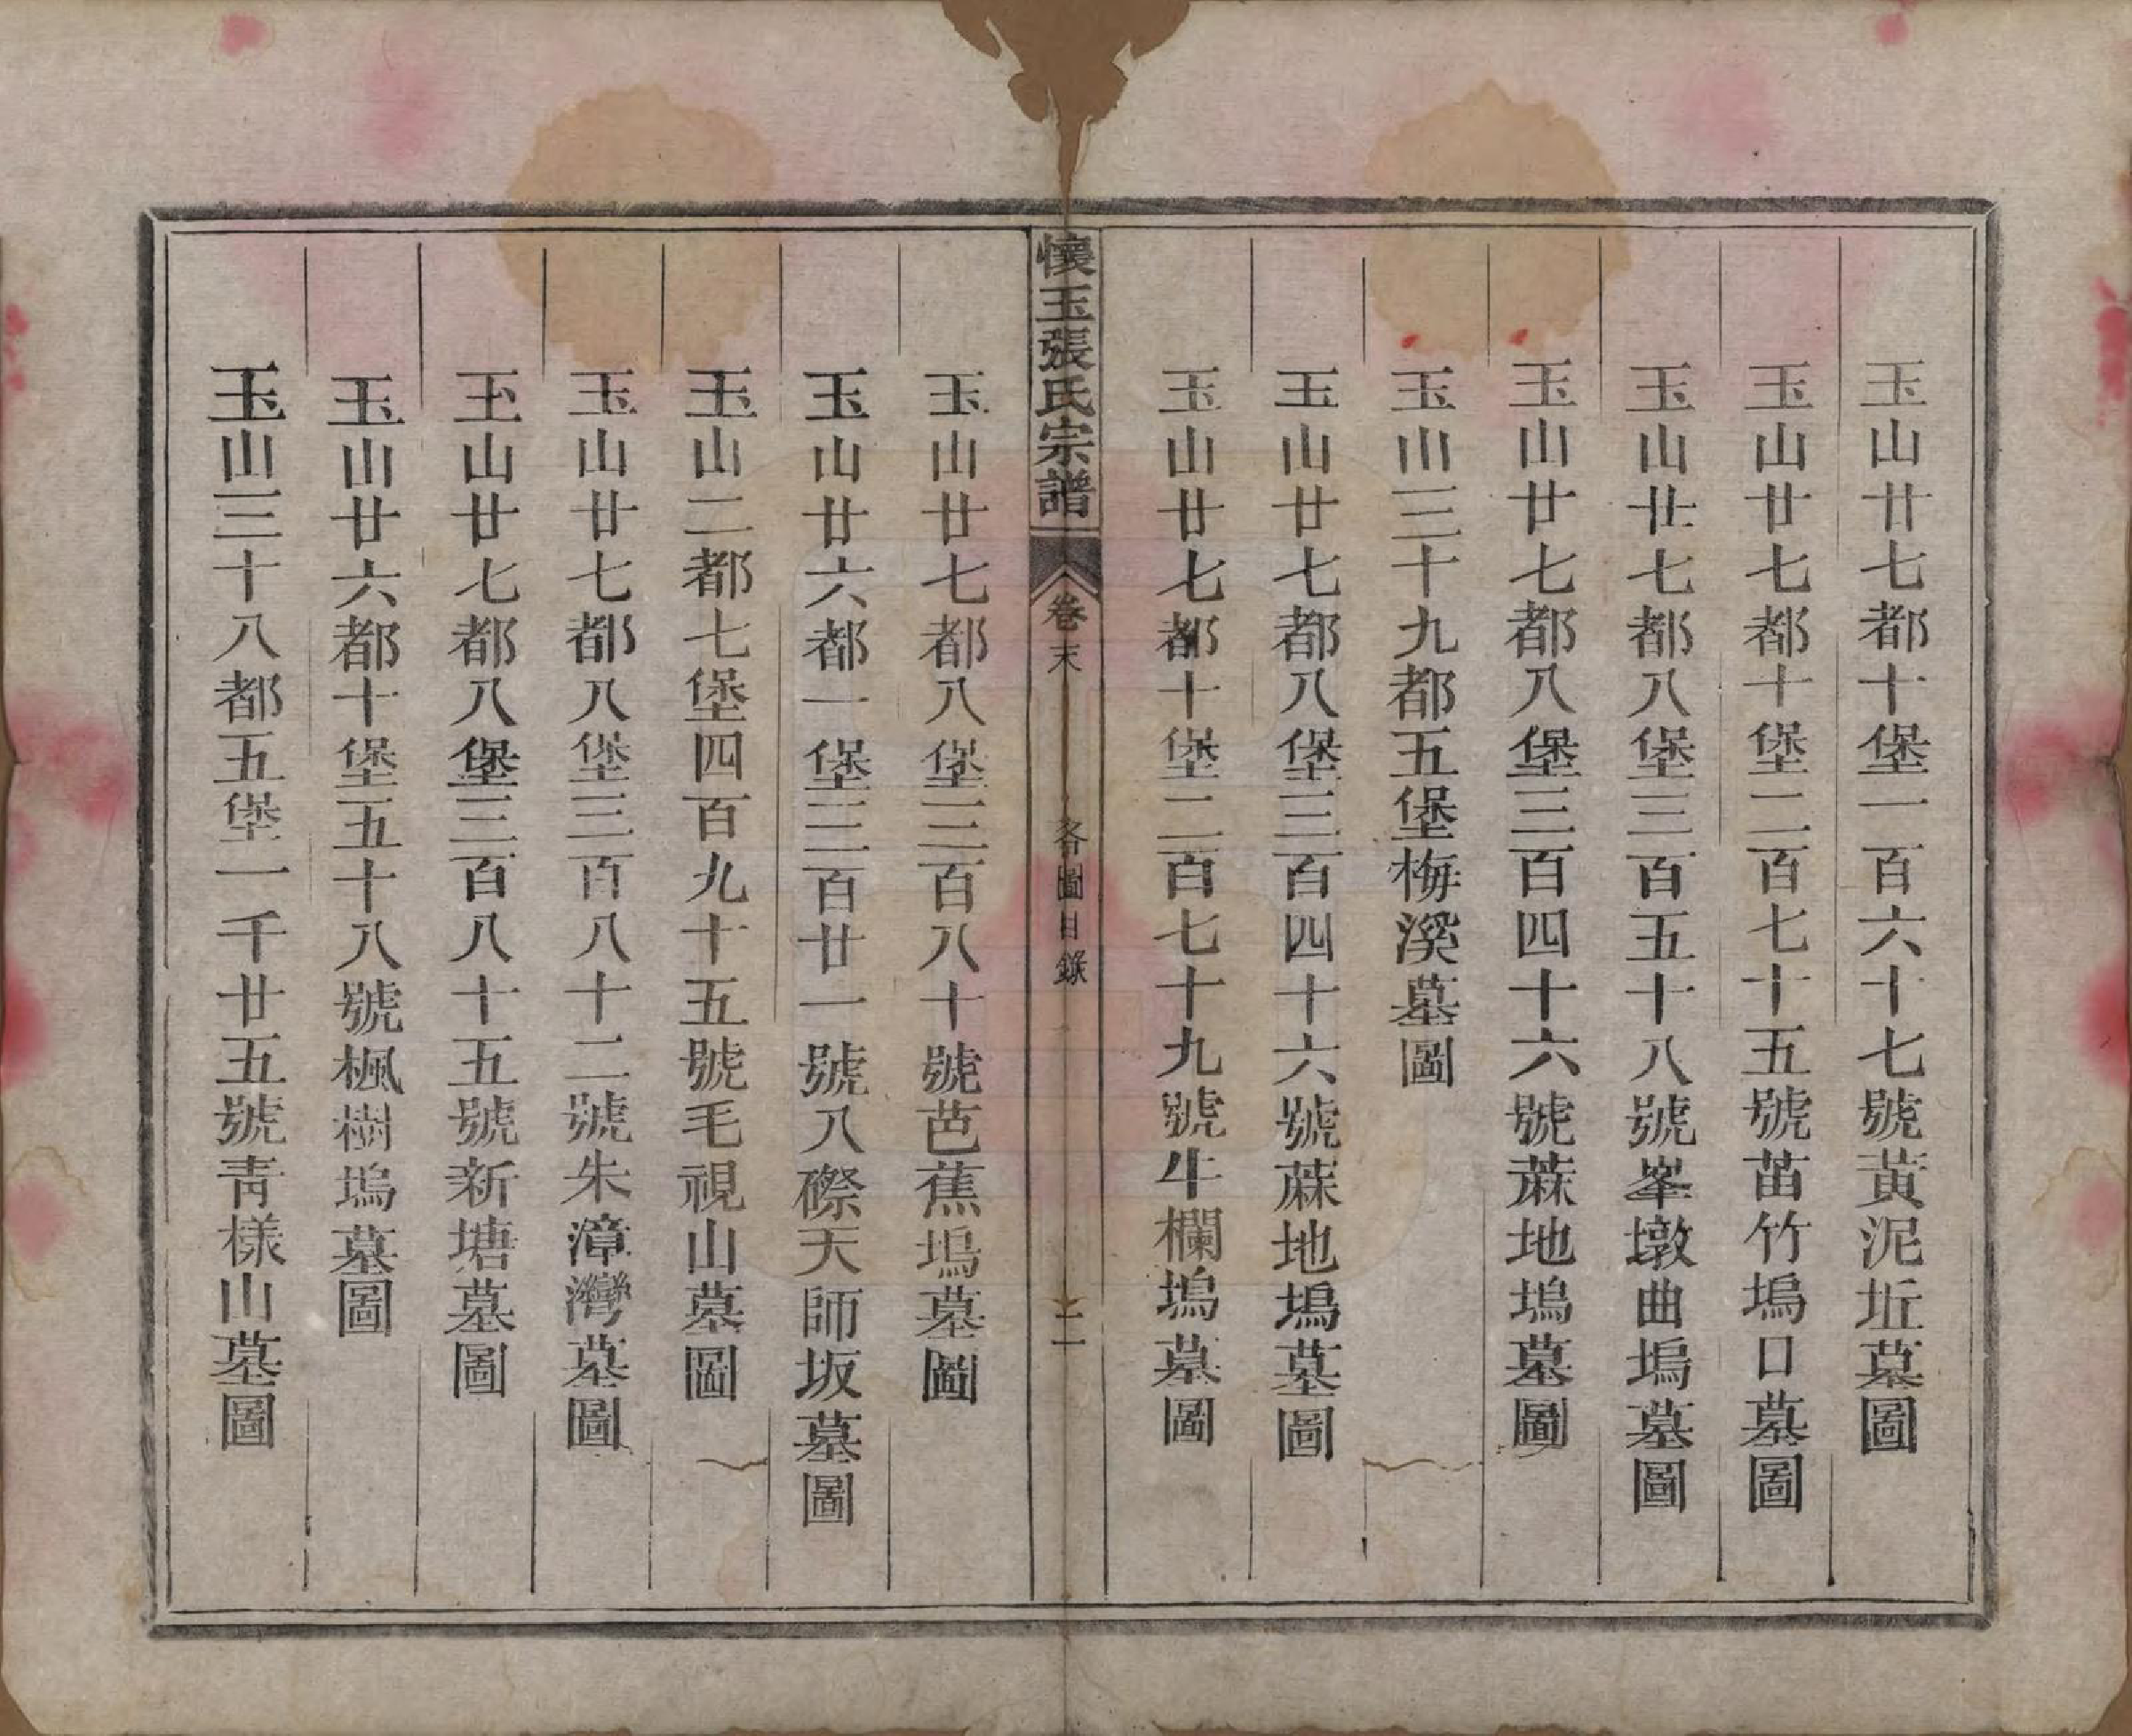 玉山廿七都十堡一百六十七號黃泥坵墓圖
玉山廿七都十堡二百七十五號苗竹塢口墓圖
玉山廿七都八堡三百五十八號峯墩曲塢墓圖
玉山廿七都八堡三百四十六號蔴地塢墓圖
玉山三十九都五堡梅溪墓圖
玉山廿七都八堡三百四十六號蔴地塢墓圖
玉山廿七都十堡二百七十九號牛欄塢墓圖
懷玉張氏宗譜
卷末
各圖目錄
二
玉山廿七都八堡三百八十號芭蕉塢墓圖
玉山廿六都一堡三百廿一號八磜天師坂墓圖
玉山二都七堡四百九十五號毛視山墓圖
玉山廿七都八堡三百八十二號朱漳灣墓圖
玉山廿七都八堡三百八十五號新塘墓圖
玉山廿六都十堡五十八號楓樹塢墓圖
玉山三十八都五堡一千廿五號青樣山墓圖